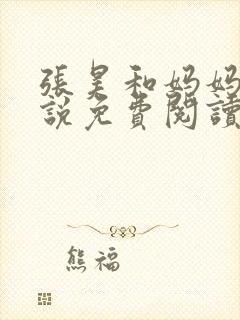 張昊和妈妈
說免費閱讀
熊福